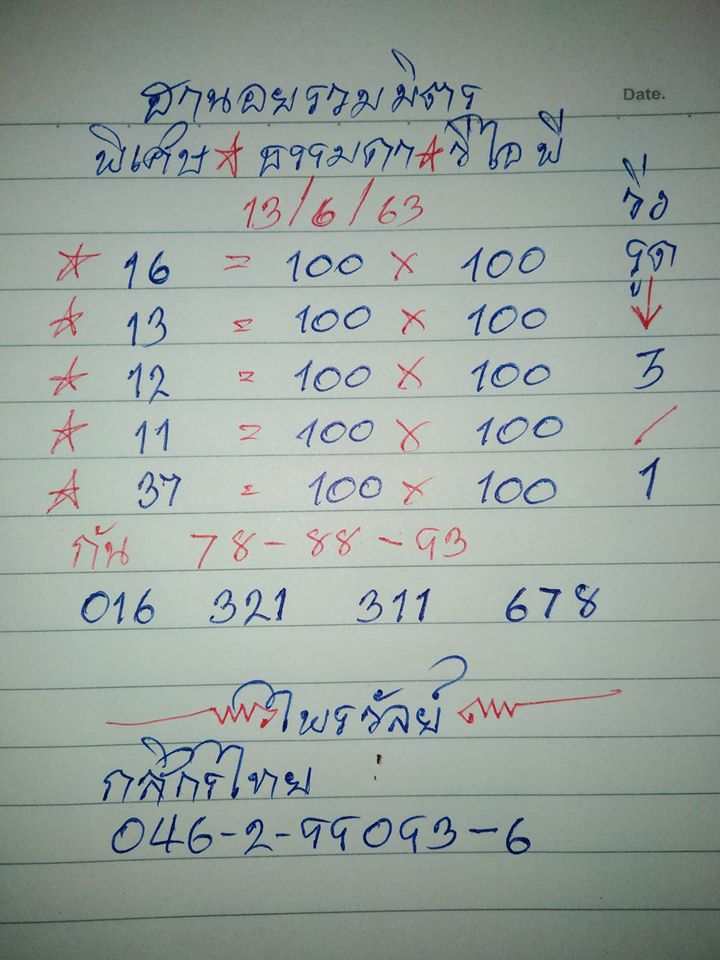 Date.
ฮานอยรวมมิตร
พิเศษ ☆ ธรรมดา ☆ วีไอพี
13/6/63
วิ่ง
รูด
↓
☆ 16 = 100 × 100
☆ 13 = 100 × 100
☆ 12 = 100 × 100 3
☆ 11 = 100 × 100 /
☆ 37 = 100 × 100 1
กัน 78 - 88 - 93
016 321 311 678
ไพรวัลย์
กสิกรไทย
046-2-99093-6